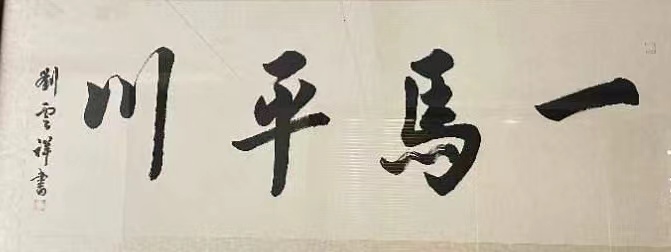 一馬平川
劉雲祥書